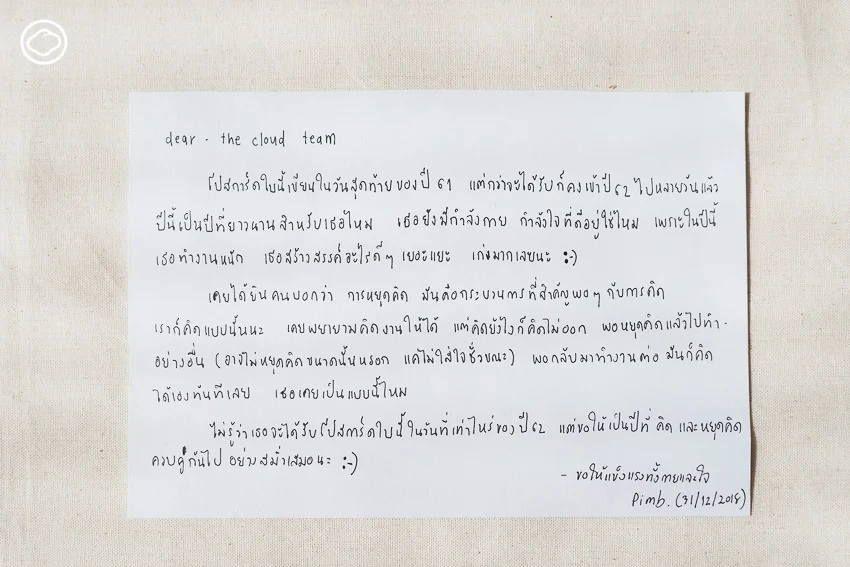 dear - the cloud team
โปสการ์ดใบนี้เขียนในวันสุดท้ายของปี 61 แต่กว่าจะได้รับก็คงเข้าปี 62 ไปหลายวันแล้ว
ปีนี้เป็นปีที่ยาวนานสำหรับเธอไหม เธอยังมีกำลังกาย กำลังใจที่ดีอยู่ใช่ไหม เพราะในปีนี้
เธอทำงานหนัก เธอสร้างสรรค์อะไรดีๆ เยอะแยะ เก่งมากเลยนะ :-)
เคยได้ยินคนบอกว่า การหยุดคิด มันคือกระบวนการที่สำคัญพอๆ กับการคิด
เราก็คิดแบบนั้นนะ เคยพยายามคิดงานให้ได้ แต่คิดยังไงก็คิดไม่ออก พอหยุดคิดแล้วไปทำ-
อย่างอื่น (อาจไม่หยุดคิดขนาดนั้นหรอก แค่ไม่ใส่ใจชั่วขณะ) พอกลับมาทำงานต่อ มันก็คิด
ได้เองทันทีเลย เธอเคยเป็นแบบนี้ไหม
ไม่รู้ว่าเธอจะได้รับโปสการ์ดใบนี้ในวันที่เท่าไหร่ของปี 62 แต่ขอให้เป็นปีที่ คิด และหยุดคิด
ควบคู่กันไป อย่างสม่ำเสมอนะ :-)
- ขอให้แข็งแรงทั้งกายและใจ
Pimb. (31/12/2018)